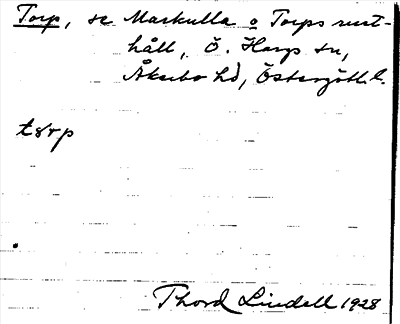 Torp, se Markulla o Torps rust-
håll, Ö. Hargs sn,
Åkerbo hd, Östergötl. l.
tɔrp
Thord Lindell 1928